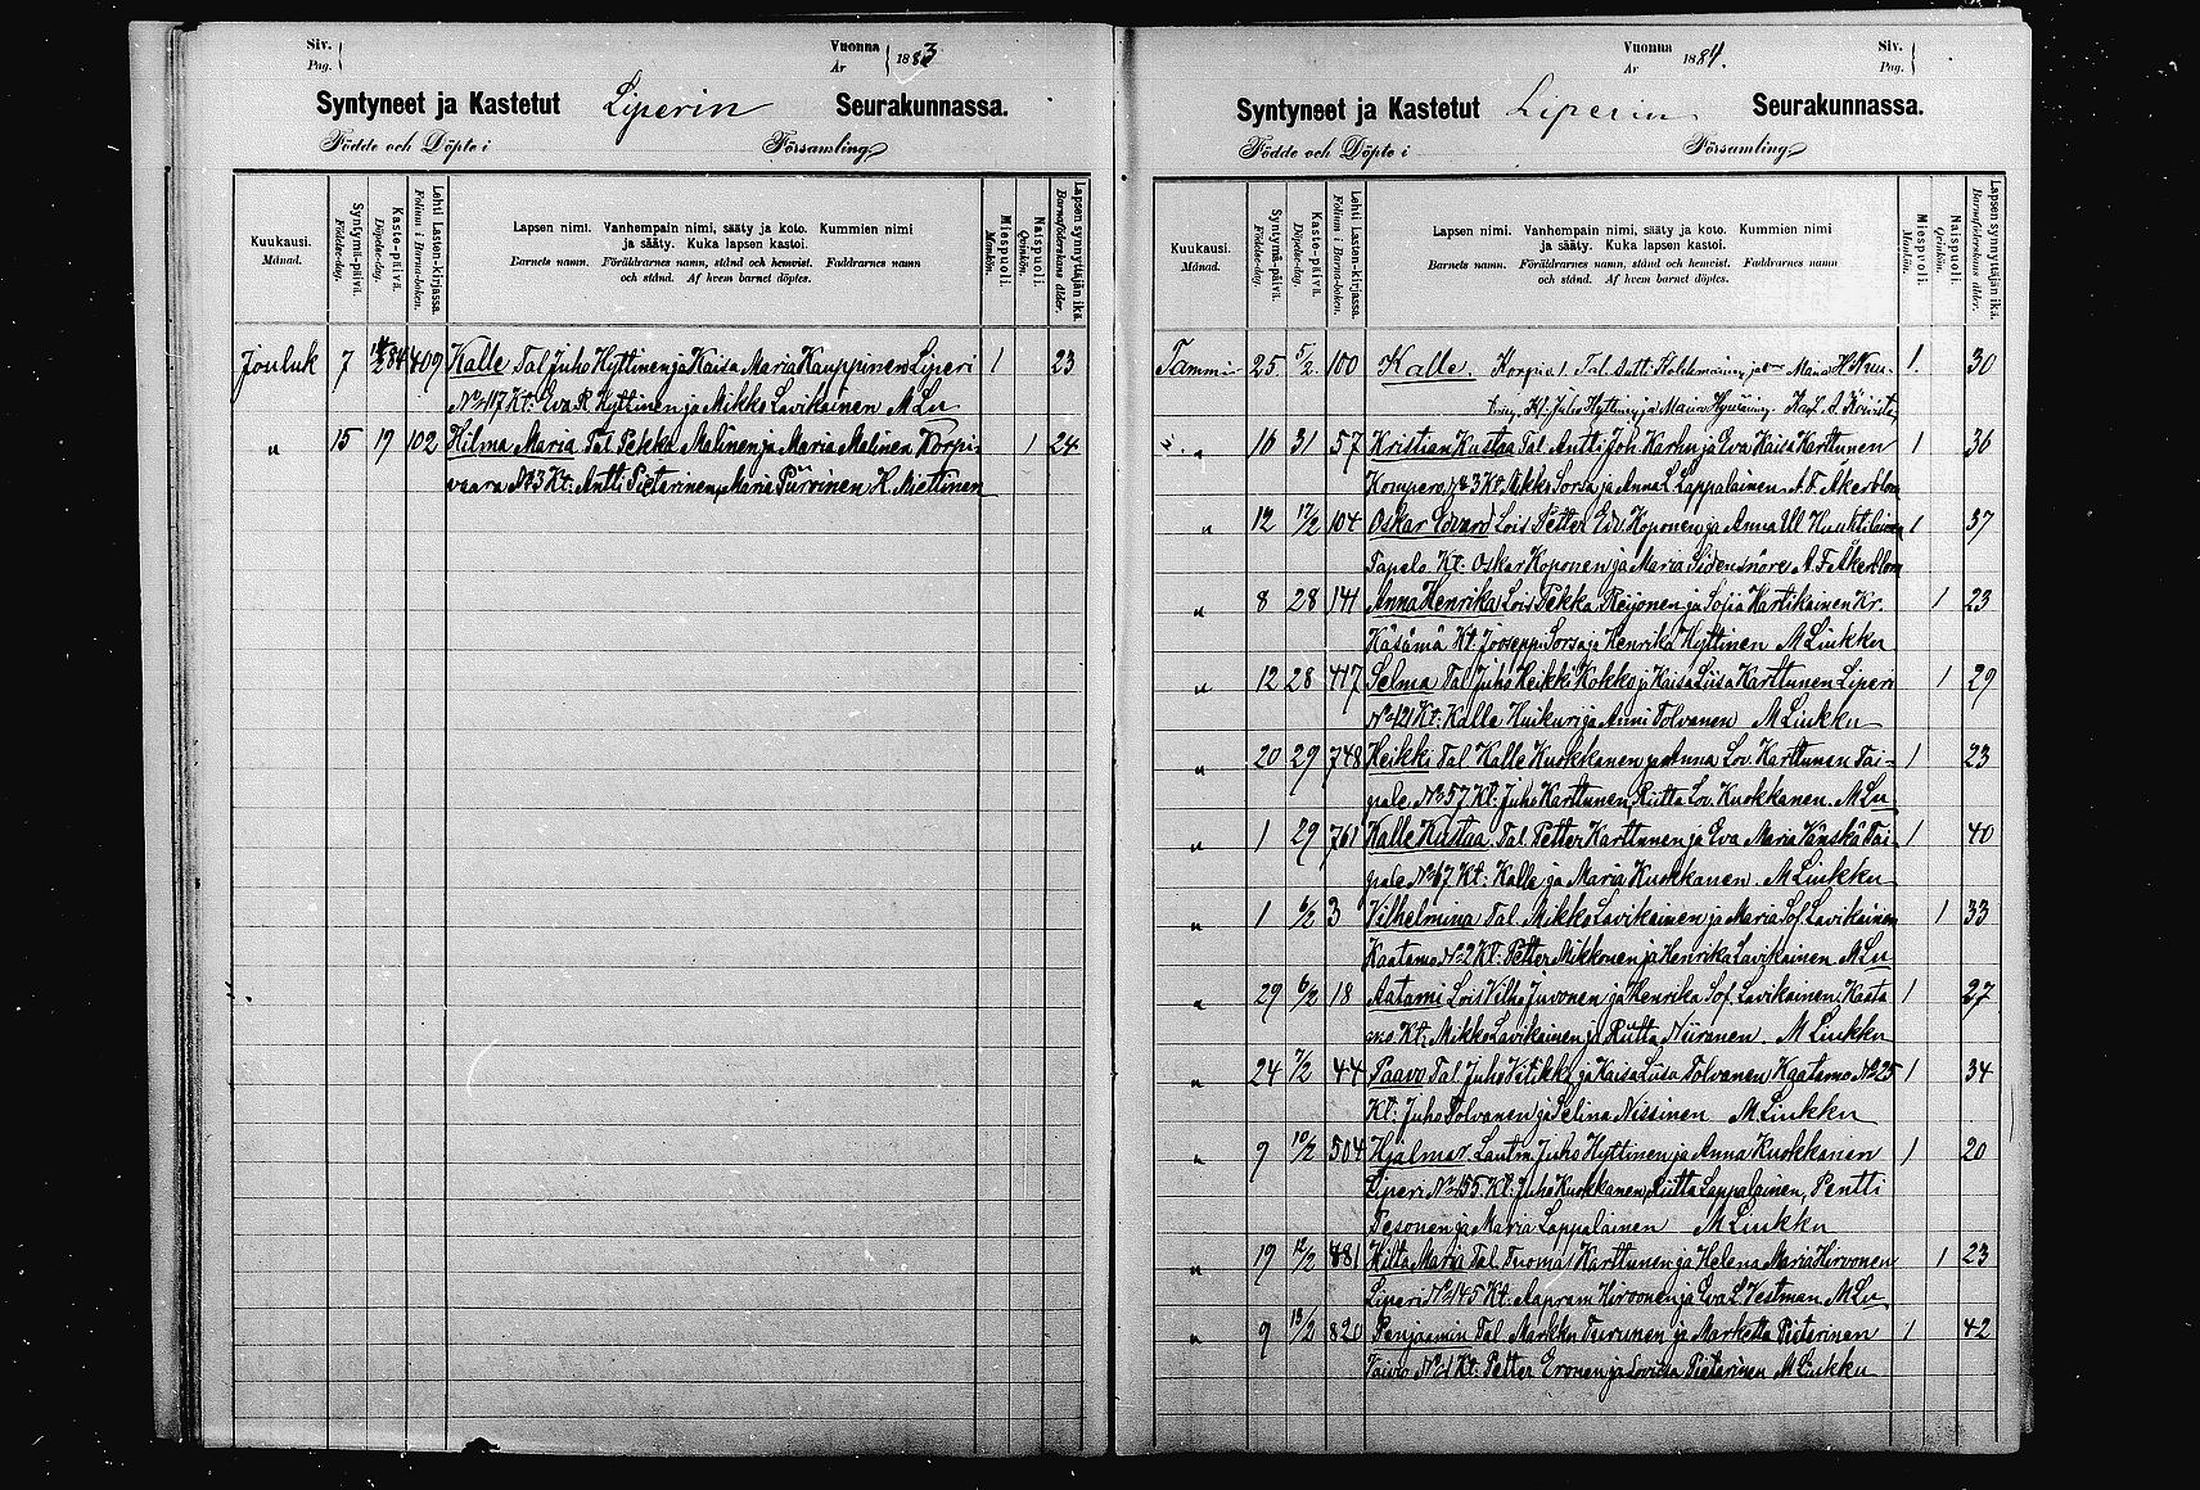 Siv.
Pag.
Vuonna
År
1883
Syntyneet ja Kastetut Liperin Seurakunnassa.
Födde och Döpte i Församling
Kuukausi.
Månad.
Syntymä-päivä.
Födelse-dag.
Kaste-päivä.
Döpelse-dag.
Lehti Lasten-kirjassa.
Folium i Barna-boken.
Lapsen nimi. Vanhempain nimi, sääty ja koto. Kummien nimi
ja sääty. Kuka lapsen kastoi.
Barnets namn. Föräldrarnes namn, stånd och hemvist. Faddrarnes namn
och stånd. Af hvem barnet döptes.
Miespuoli.
Mankön.
Naispuoli.
Qvinkön.
Lapsen synnyttäjän ikä.
Barnaföderskans ålder.
Jouluk 7 409 Kalle Tal Juho Hyttinen ja Kaisa Maria Kauppinen Liperi 1 23
No 117 Kt: Eva R Hyttinen ja Mikko Lavikainen M Lu
" 15 19 102 Hilma Maria Tal Pekka Malinen ja Maria Malinen Korpi- 1 24
vaara No 3 Kt: Antti Pietarinen ja Maria Purvinen K. Miettinen
Vuonna
År
1884.
Siv.
Pag.
Syntyneet ja Kastetut Liperin Seurakunnassa.
Födde och Döpte i Församling
Kuukausi.
Månad.
Syntymä-päivä.
Födelse-dag.
Kaste-päivä.
Döpelse-dag.
Lehti Lasten-kirjassa.
Folium i Barna-boken.
Lapsen nimi. Vanhempain nimi, sääty ja koto. Kummien nimi
ja sääty. Kuka lapsen kastoi.
Barnets namn. Föräldrarnes namn, stånd och hemvist. Faddrarnes namn
och stånd. Af hvem barnet döptes.
Miespuoli.
Mankön.
Naispuoli.
Qvinkön.
Lapsen synnyttäjän ikä.
Barnaföderskans ålder.
Tammi- 25. 5/2. 100 Kalle. Korpiv. 1. Tal. Antti ja Maria H. 1. 30
Kt. Juho Hyttinen ja Maria
" 16 31 57 Kristian Kustaa Tal. Antti Joh. Karhu ja Eva Kaisa Karttunen 1 36
Kompero No 3 Kt. Mikko Sorsa ja Anna L Lappalainen A. F. Åkerblom
" 12 17/2 104 Oskar Edvard Lois Petter Ed. Koponen ja Anna Ul 1 37
Tapelo. Kt. Oskar Koponen ja Maria Sidensnöre A. F. Åkerblom
" 8 28 141 Anna Henrika Lois Pekka Reijonen ja Sofia Hartikainen Kr. 1 23
Käsämä Kt. Jooseppi Sorsa ja Henrika Hyttinen M Liukku
" 12 28 417 Selma Tal Juho Heikki Kokko ja Kaisa Liisa Karttunen Liperi 1 29
No 121 Kt: Kalle Huikuri ja Anni Tolvanen M Liukku
" 20 29 748 Heikki Tal Kalle Kuokkanen ja Anna Lov. Karttunen Tai- 1 23
pale No 57 Kt: Juho Karttunen, Riitta Lov. Kuokkanen. M Lu
" 1 29 761 Kalle Kustaa. Tal. Petter Karttunen ja Eva Maria Vänskä Tai- 1 40
pale No 67 Kt: Kalle ja Maria Kuokkanen. M Liukku
" 1 6/2 3 Vilhelmina Tal. Mikko Lavikainen ja Maria Sof. Lavikainen 1 33
Kaatamo No 2 Kt: Petter Mikkonen ja Henrika Lavikainen M Lu
" 29 6/2 18 Aatami Lois Vilho Juvonen ja Henrika Sof. Lavikainen. Kaata 1 27
mo. Kt: Mikko Lavikainen ja Riitta Niiranen. M Liukku
" 24 7/2 44 Paavo Tal. Juho Vitikka ja Kaisa Liisa Tolvanen Kaatamo No 25 1 34
Kt: Juho Tolvanen ja Selina Nissinen M Liukku
" 9 10/2 504 Hjalmar. Lautm. Juho Hyttinen ja Anna Kuokkanen 1 20
Liperi No 155. Kt: Juho Kuokkanen, Riitta Lappalainen, Pentti
Pesonen ja Maria Lappalainen M Liukku
" 19 12/2 481 Hilta Maria Tal. Tuomas Karttunen ja Helena Maria Hirvonen 1 23
Liperi No 145 Kt. Aapram Hirvonen ja Eva L Vestman M Lu
" 9 13/2 820 Penjaamin Tal. Markku Turunen ja Marketta Pietarinen 1 42
Vaivio No 1 Kt. Petter Eronen ja Loviisa Pietarinen M Liukku